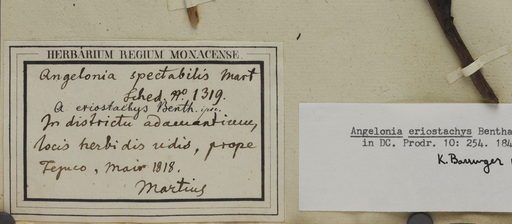 HERBARIUM REGIUM MONACENSE.
Angelonia spectabilis Mart
Sched. No 1319.
A eriostachys Benth. ipse.
In districtu adamantium,
locis herbidis udis, prope
Tejuco, Maio 1818.
Martius
Angelonia eriostachys Bentha
in DC. Prodr. 10: 254. 184
K. Barringer